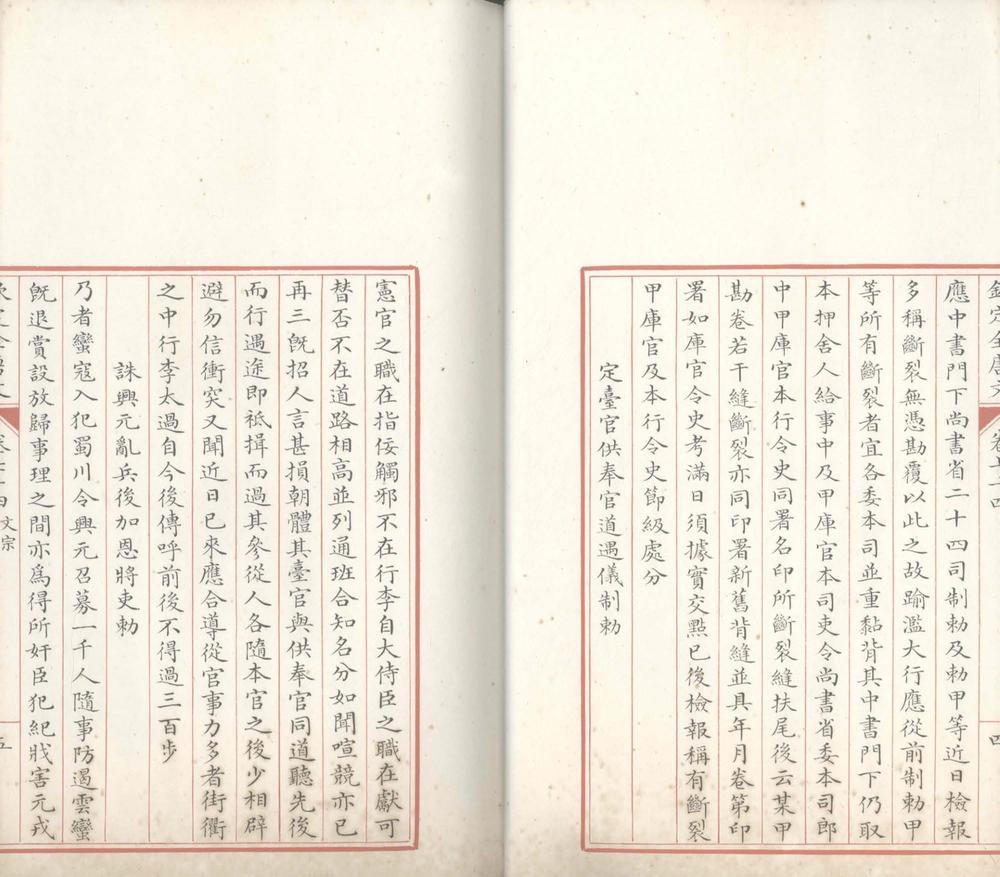 欽定全唐文
卷七十四
四
應中書門下尚書省二十四司制勅及勅甲等近日檢報
多稱斷裂無憑勘覆以此之故踰濫大行應從前制勅甲
等所有斷裂者宜各委本司並重黏背其中書門下仍取
本押舍人給事中及甲庫官本司吏令尚書省委本司郎
中甲庫官本行令史同署名印所斷裂縫扶尾後云某甲
勘卷若干縫斷裂亦同印署新舊背縫並具年月卷第印
署如庫官令史考滿日須據實交點已後檢報稱有斷裂
甲庫官及本行令史節級處分
定臺官供奉官道遇儀制勅
憲官之職在指佞觸邪不在行李自大侍臣之職在獻可
替否不在道路相高並列通班合知名分如聞喧競亦已
再三旣招人言甚損朝體其臺官與供奉官同道聽先後
而行遇途即祗揖而過其參從人各隨本官之後少相辟
避勿信衝突又聞近日已來應合導從官事力多者街衢
之中行李太過自今後傳呼前後不得過三百步
誅興元亂兵後加恩將吏勅
乃者蠻寇入犯蜀川令興元召募一千人隨事防遏雲蠻
旣退賞設放歸事理之間亦爲得所奸臣犯紀戕害元戎
欽定全唐文
卷七十四
文宗
五